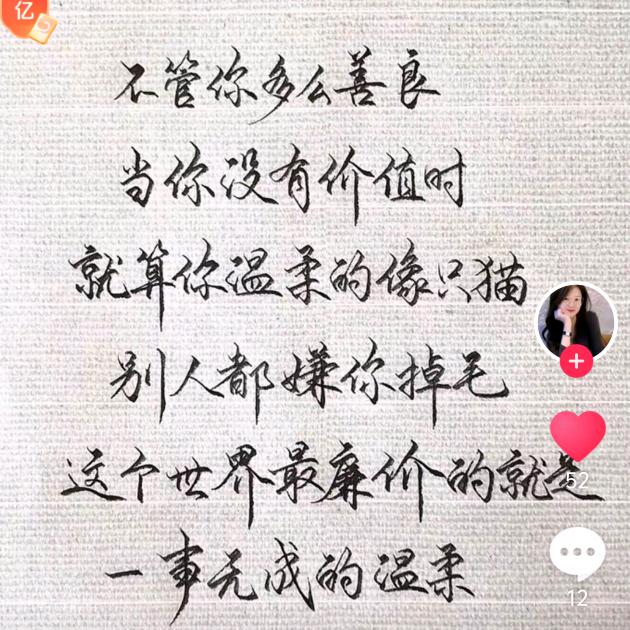 亿
不管你多么善良
当你没有价值时
就算你温柔的像只猫
别人都嫌你掉毛
这个世界最廉价的就是
一事无成的温柔
52
12